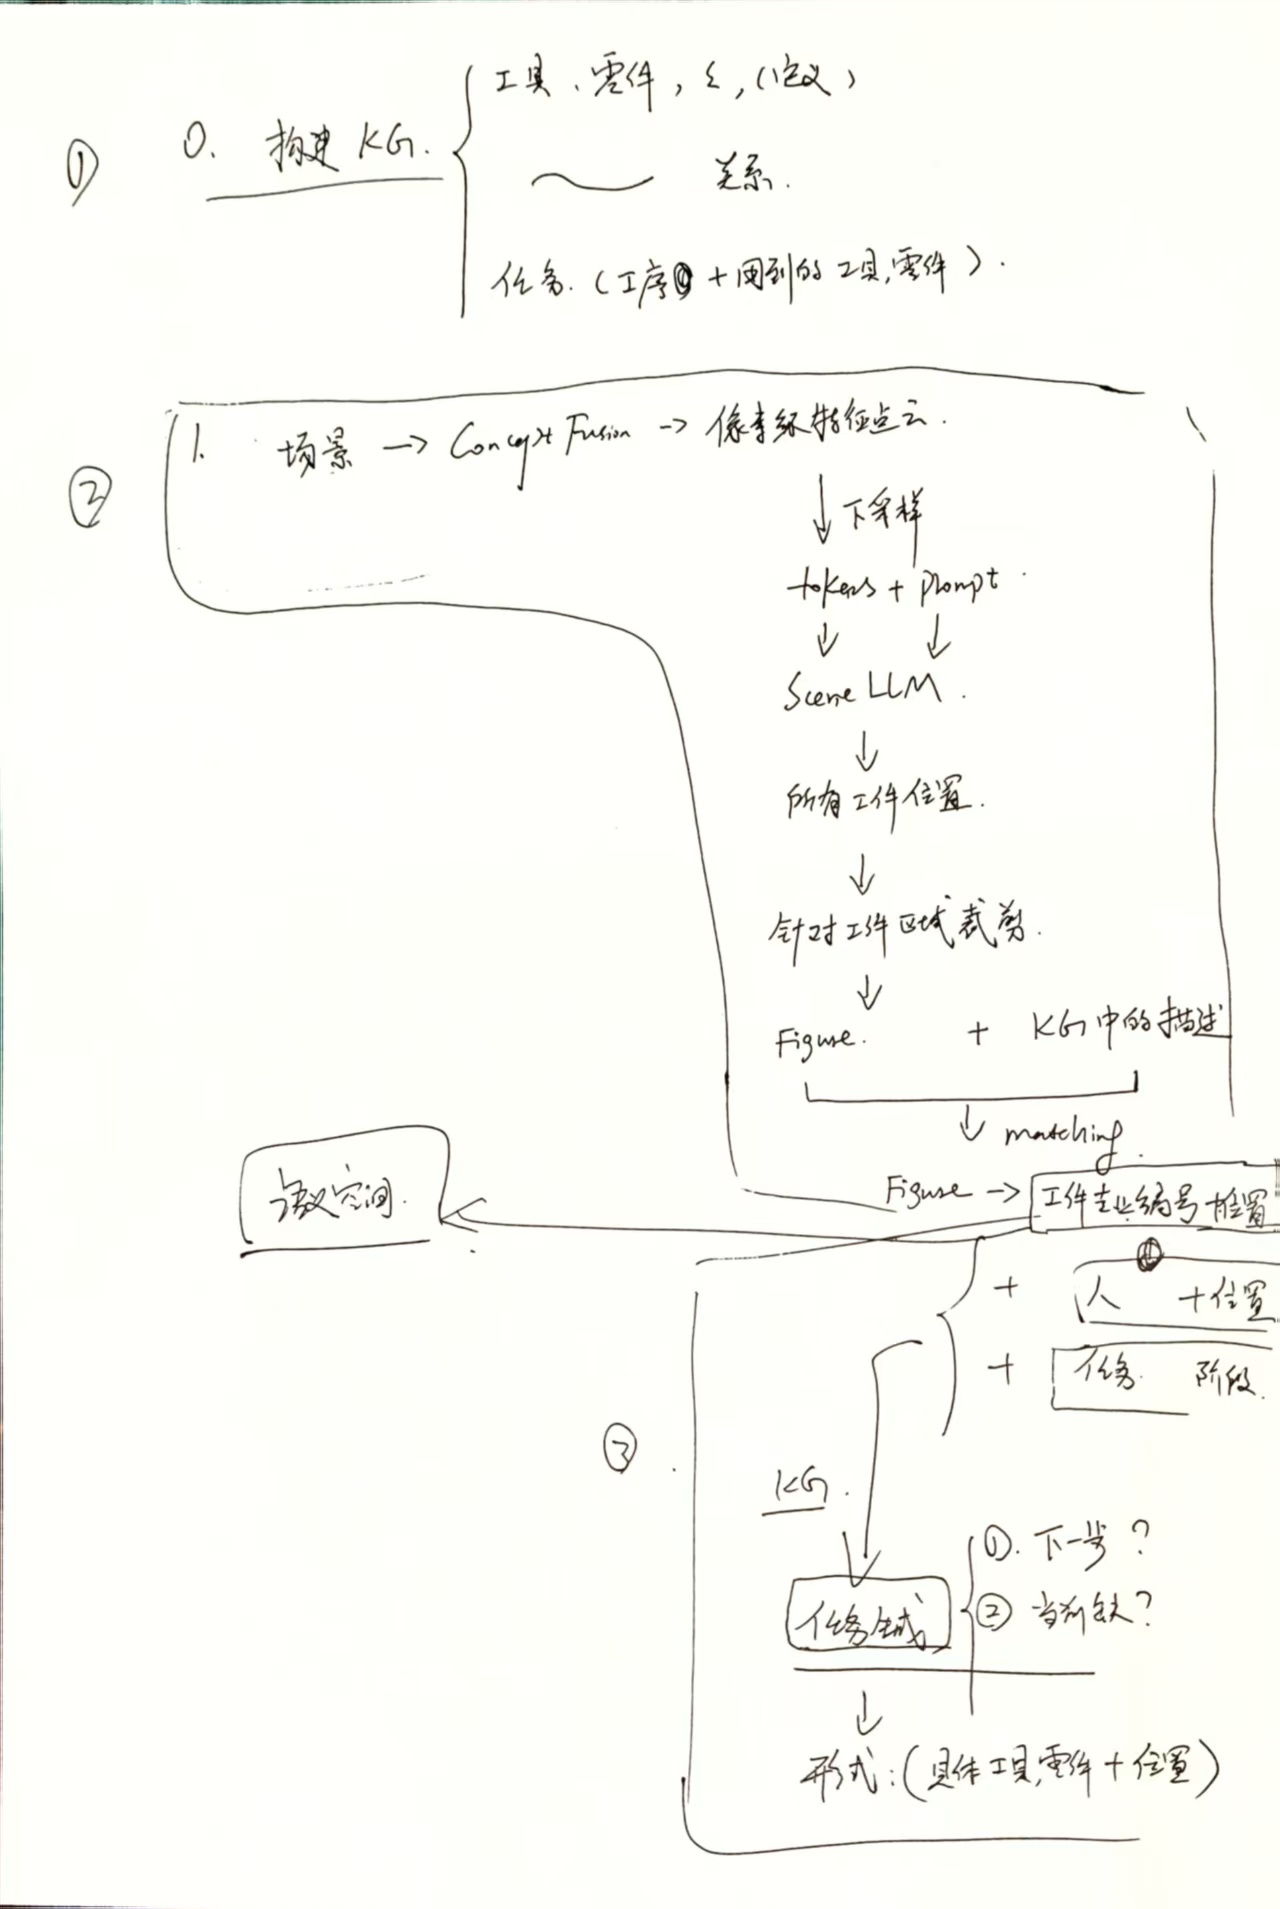 工具、零件,ξ,(定义)
① 0. 构建 KG.
关系.
任务.(工序 + 用到的工具,零件).
② 1. 场景 → Concept Fusion → 像素级特征点云.
↓ 下采样
tokens + prompt.
↓ ↓
Scene LLM.
↓
所有工件位置.
↓
针对工件区域裁剪.
↓
Figure. + KG中的描述
↓ matching.
Figure → 工件专业编号+位置
语义空间.
+ 人 +位置
+ 任务 阶段.
③
KG.
①. 下一步?
任务生成 ② 当前缺?
↓
形式:(具体工具,零件+位置)